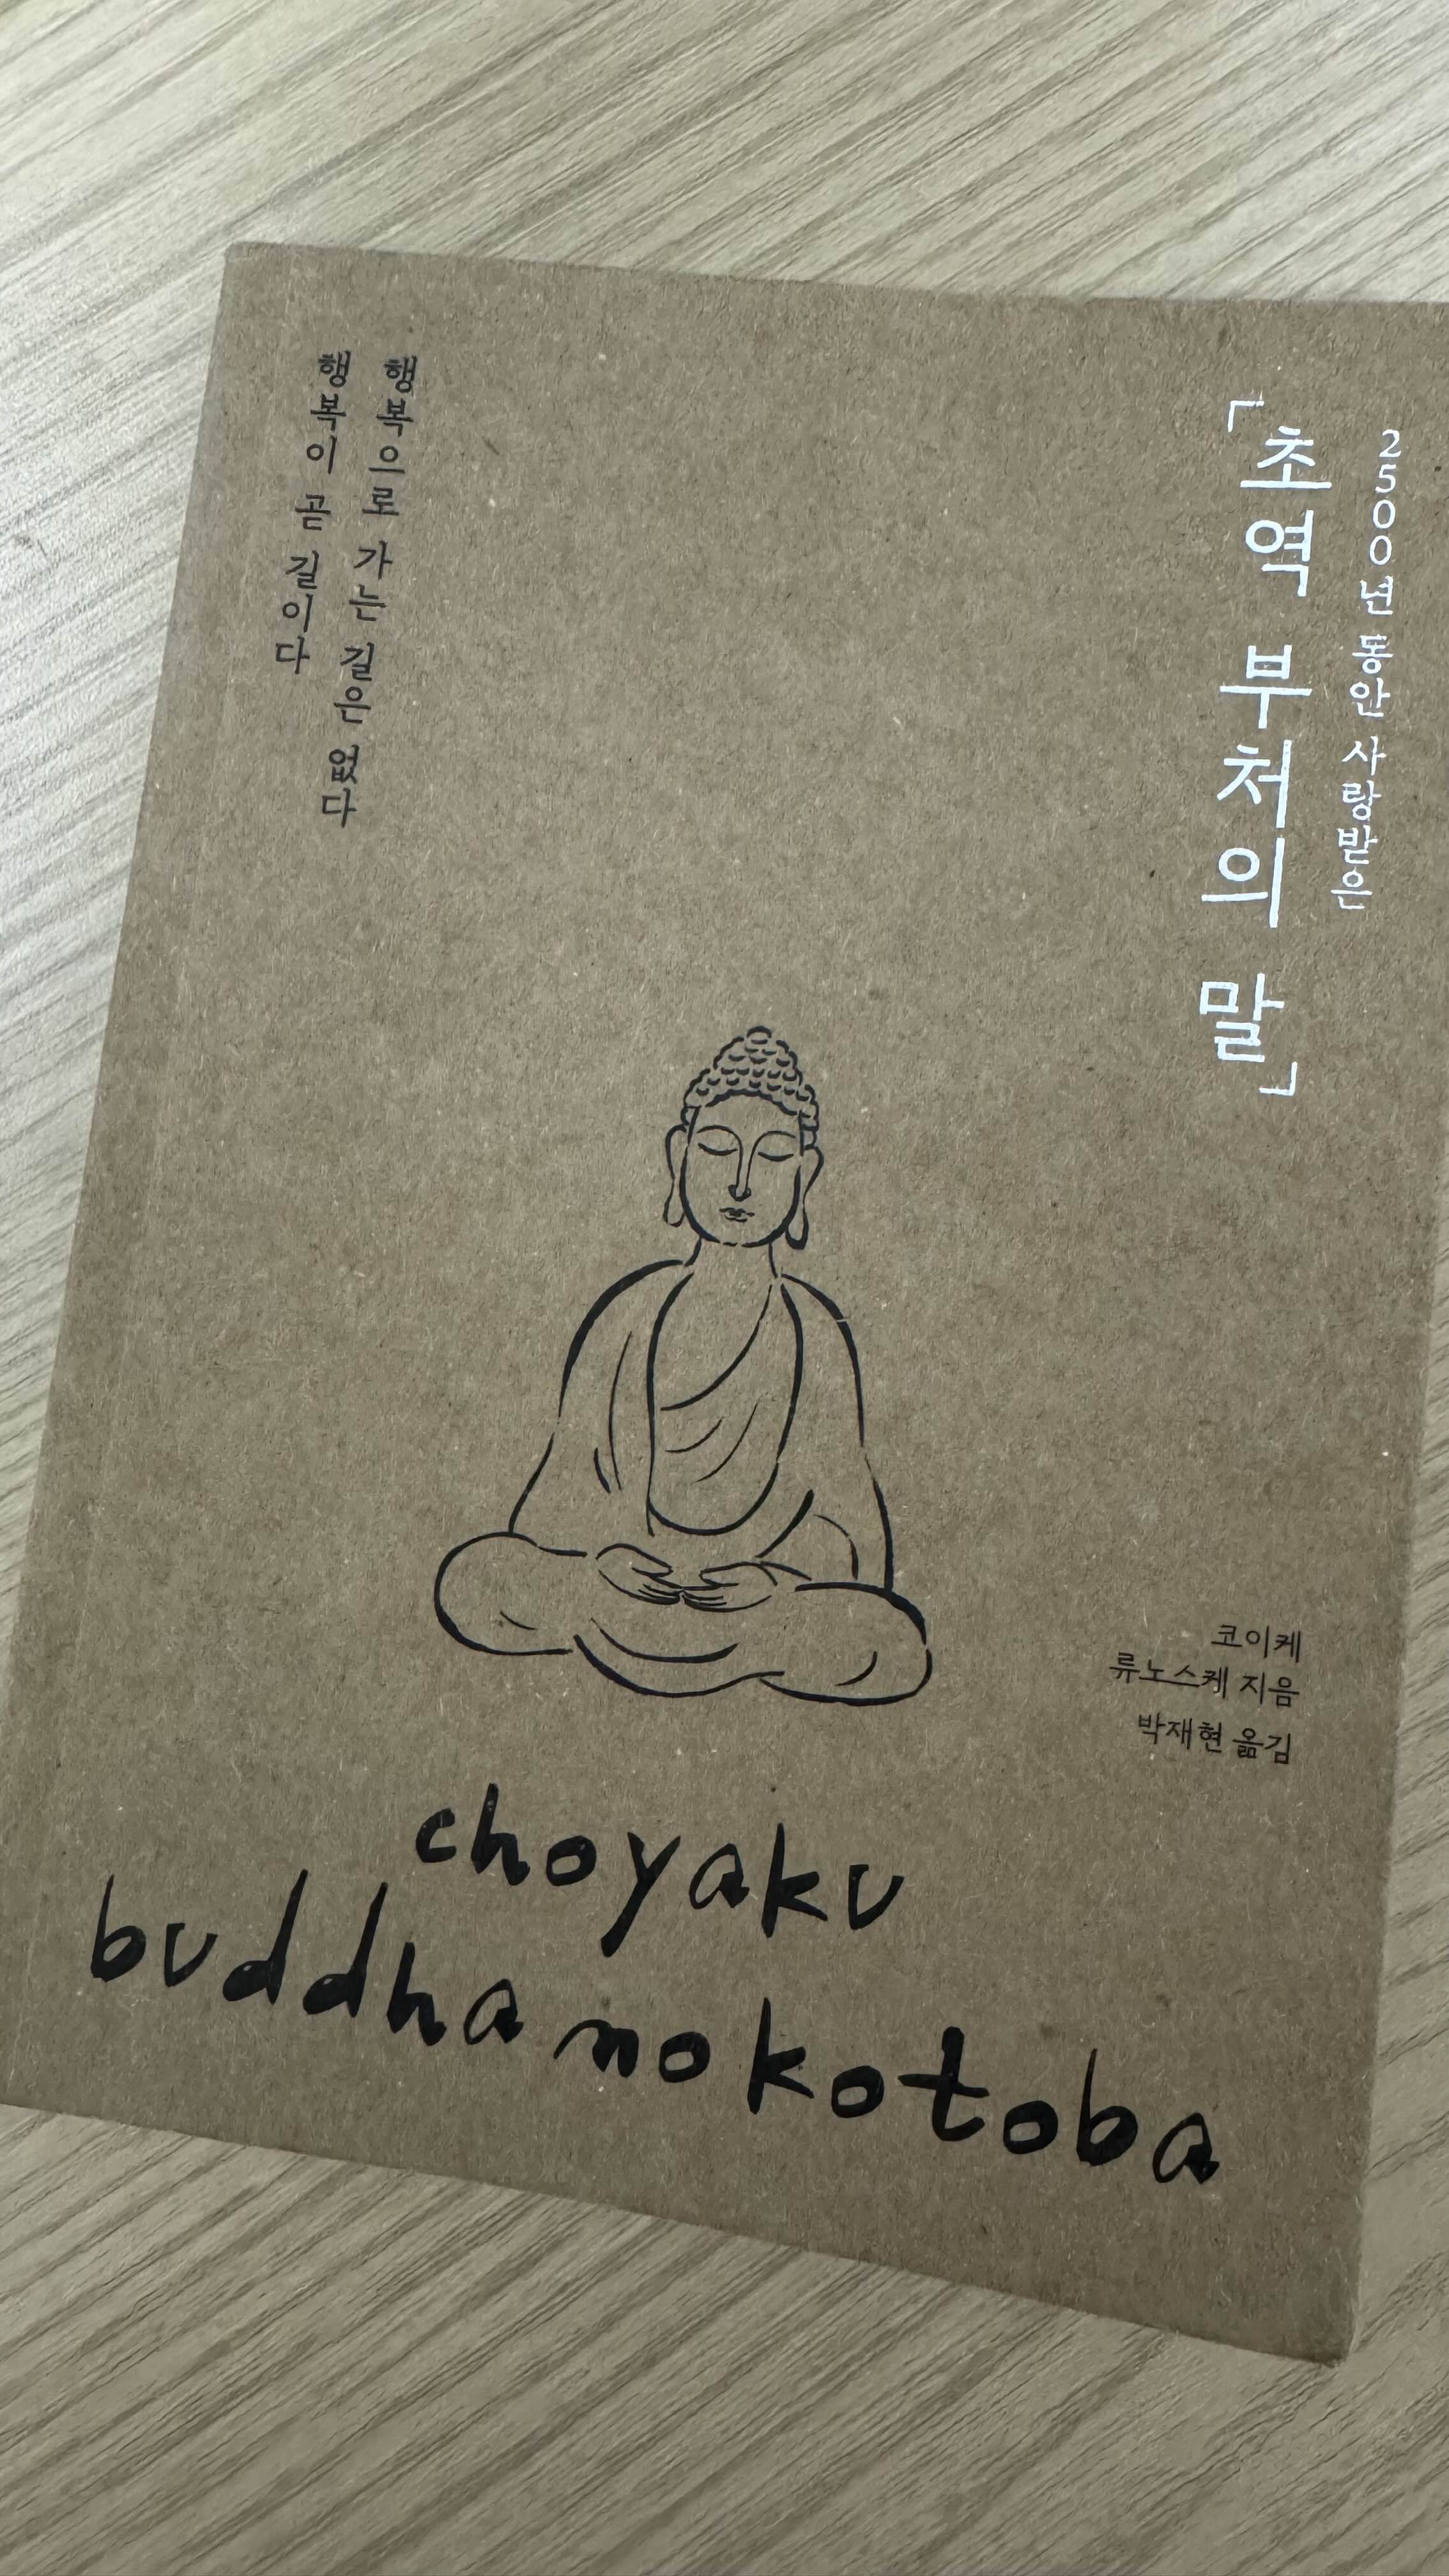 2500년 동안 사랑받은
「초역 부처의 말」
행복으로 가는 길은 없다
행복이 곧 길이다
코이케
류노스케 지음
박재현 옮김
choyaku
buddha no kotoba